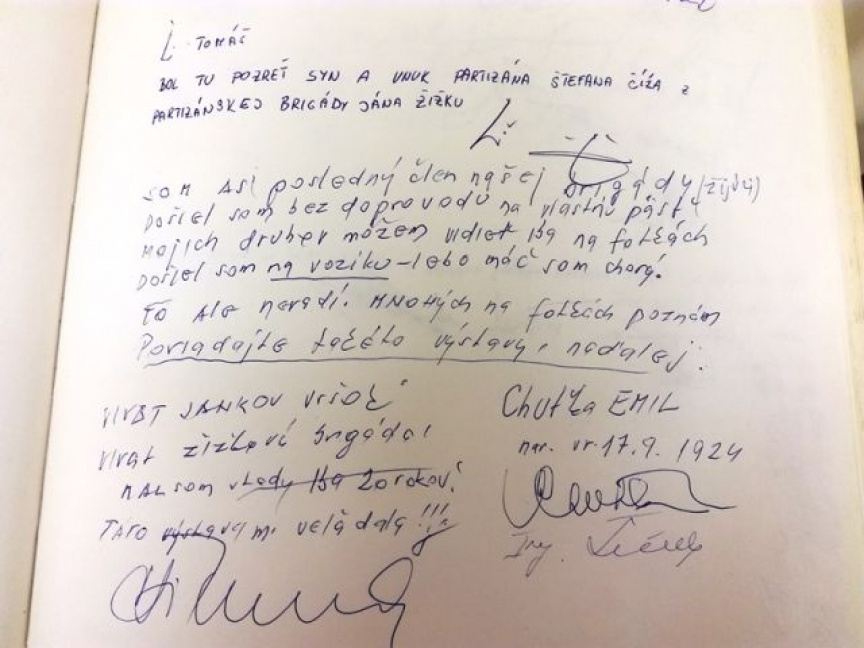 Tomáš
BOL TU POZRET SYN A VNUK PARTIZÁNA ŠTEFANA ČÍŽA z
PARTIZÁNSKEJ BRIGÁDY JÁNA ŽIŽKU
som ASi posledný člen našej brigády (žijúci)
Došiel som bez doprovodu na vlastnú päsť
Mojich druhov možem vidieť iba na fotkách
Došiel som na vozíku - lebo som chorý.
To Ale nevadí. MNOHých na fotkách poznám
Poriadajte takéto výstavy, naďalej.
VIVAT JANKOV Vŕšok
Vivat žižkova brigáda!
Chutka EMIL
nar. 17.9. 1924
MAL som vtedy iba 20 rokov!
TÁTO výstava mi veľa dala!!!
Ing.